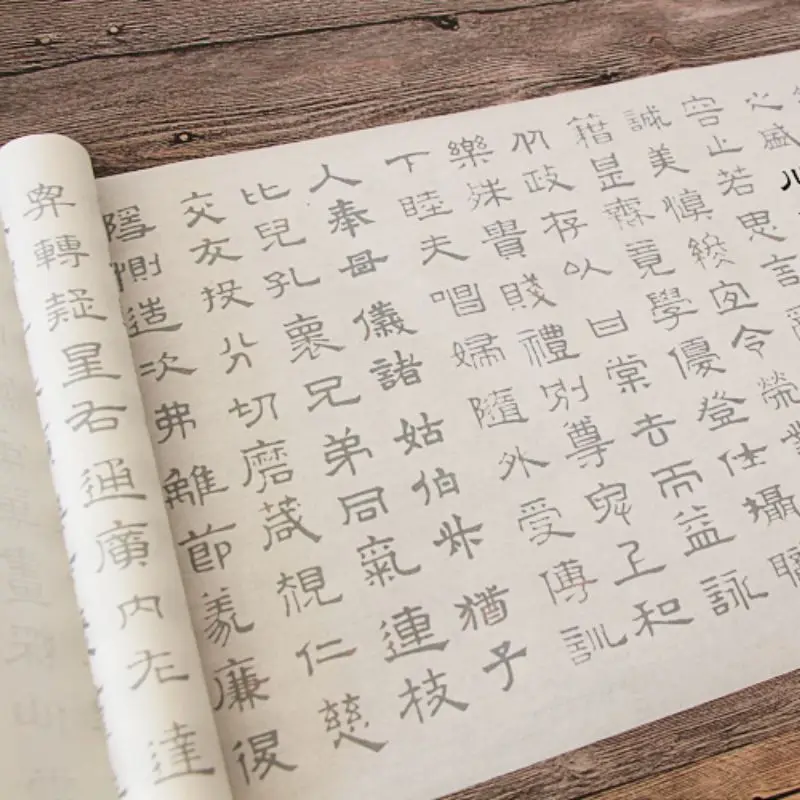 之盛川
容止若思言
誠美慎終宜令榮業
籍甚無竟學優登仕攝職
从政存以甘棠去而益詠
樂殊貴賤禮別尊卑上和
下睦夫唱婦隨外受傅訓
入奉母儀諸姑伯叔猶子
比兒孔懷兄弟同氣連枝
交友投分切磨箴規仁慈
隱惻造次弗離節義廉退
弁轉疑星右通廣內左達